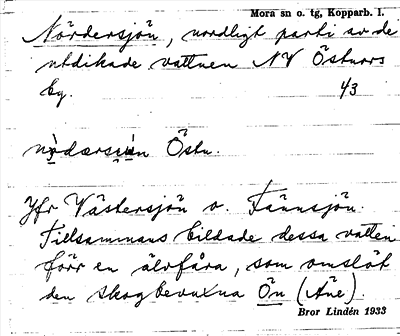 Mora sn o. tg, Kopparb. l.
Nördersjön, nordligt parti av de
utdikade vattnen NV Östnors
by. 43
Östn.
Jfr Västersjön o. Fännsjön.
Tillsammans bildade dessa vatten
förr en älvfåra, som omslöt
den skogbevuxna Ön (Åne).
Bror Lindén 1933